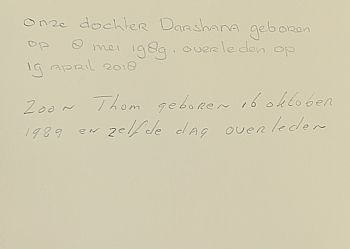 onze dochter Darshana geboren
op 8 mei 1989. overleden op
19 april 2018
Zoon Thom geboren 16 oktober
1989 en zelfde dag overleden